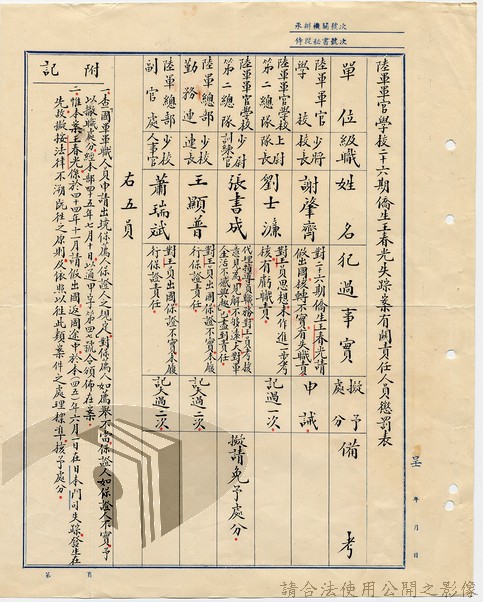 承辦機關號次
侍從秘書號次
陸軍軍官學校二十六期僑生王春光失踪案有關責任人員懲罰表
單位級職姓名犯過事實擬予處分備考
陸軍軍官學校少將校長謝肇齊對二十六期僑生王春光請假出國核轉不實有失職責申誡
陸軍軍官學校第二總隊上尉隊長劉士濂對王員思想未作進一步考核有虧職責記過一次
陸軍軍官學校第二總隊少尉訓練官張書成擬請免予處分
陸軍總部少校勤務連連長王顯普對王員出國保證不實未履行保證責任記大過二次
陸軍總部少校副官處人事官蕭瑞斌對王員出國保證不實未履行保證責任記大過二次
右五員
附記
一、查「國軍軍職人員申請出境保薦人保證人之規定」對保薦人如薦舉不當保證人如保證人不實予以撤職處分經本部四十五年七月十日以適甲字第四七號令頒佈在案
二、惟本案王春光係於四十四年十一月請假出國返國途中於本(四五)年六月一日在日本門司失踪發生在先故擬按法律不溯既往之原則依照以往此類案件之處理標準核予處分。
呈
年月日
第頁
請合法使用公開之影像